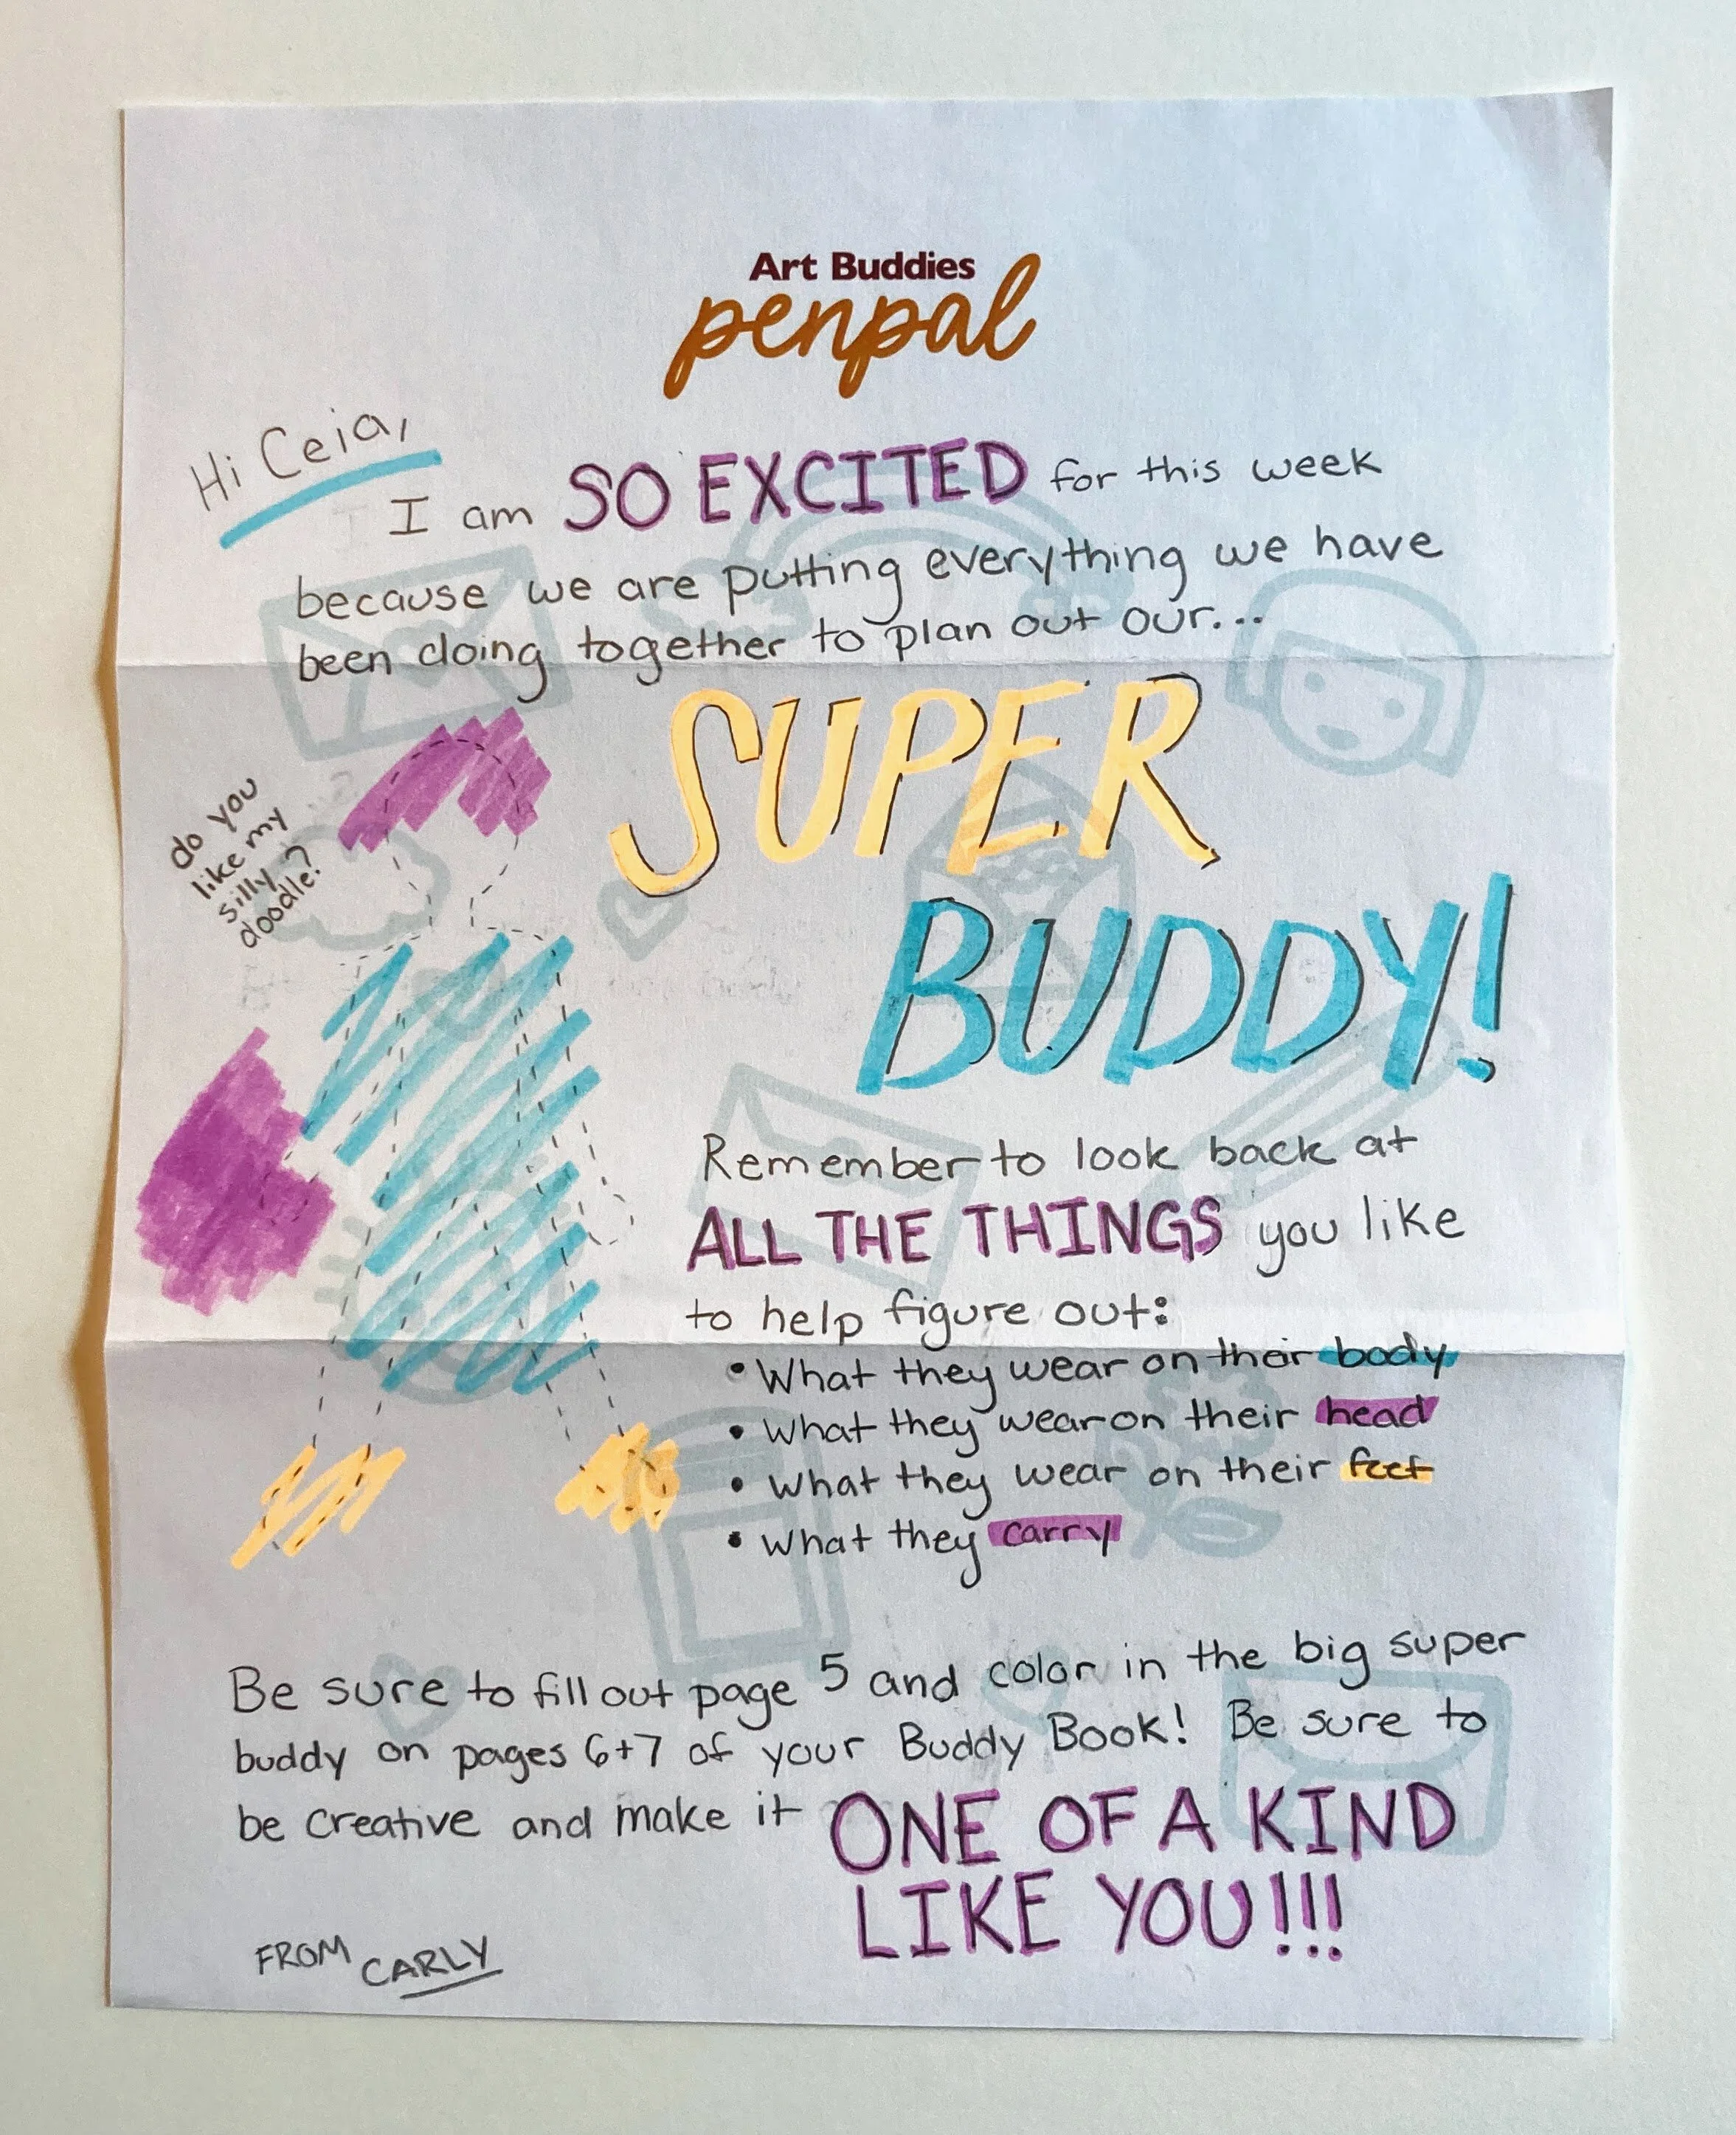 Art Buddies
penpal
Hi Ceia,
I am SO EXCITED for this week
because we are putting everything we have
been doing together to plan out our...
SUPER
BUDDY!
do you
like my
silly
doodle?
Remember to look back at
ALL THE THINGS you like
to help figure out:
• What they wear on their body
• What they wear on their head
• What they wear on their feet
• What they carry
Be sure to fill out page 5 and color in the big super
buddy on pages 6+7 of your Buddy Book! Be sure to
be creative and make it ONE OF A KIND
LIKE YOU!!!
FROM CARLY